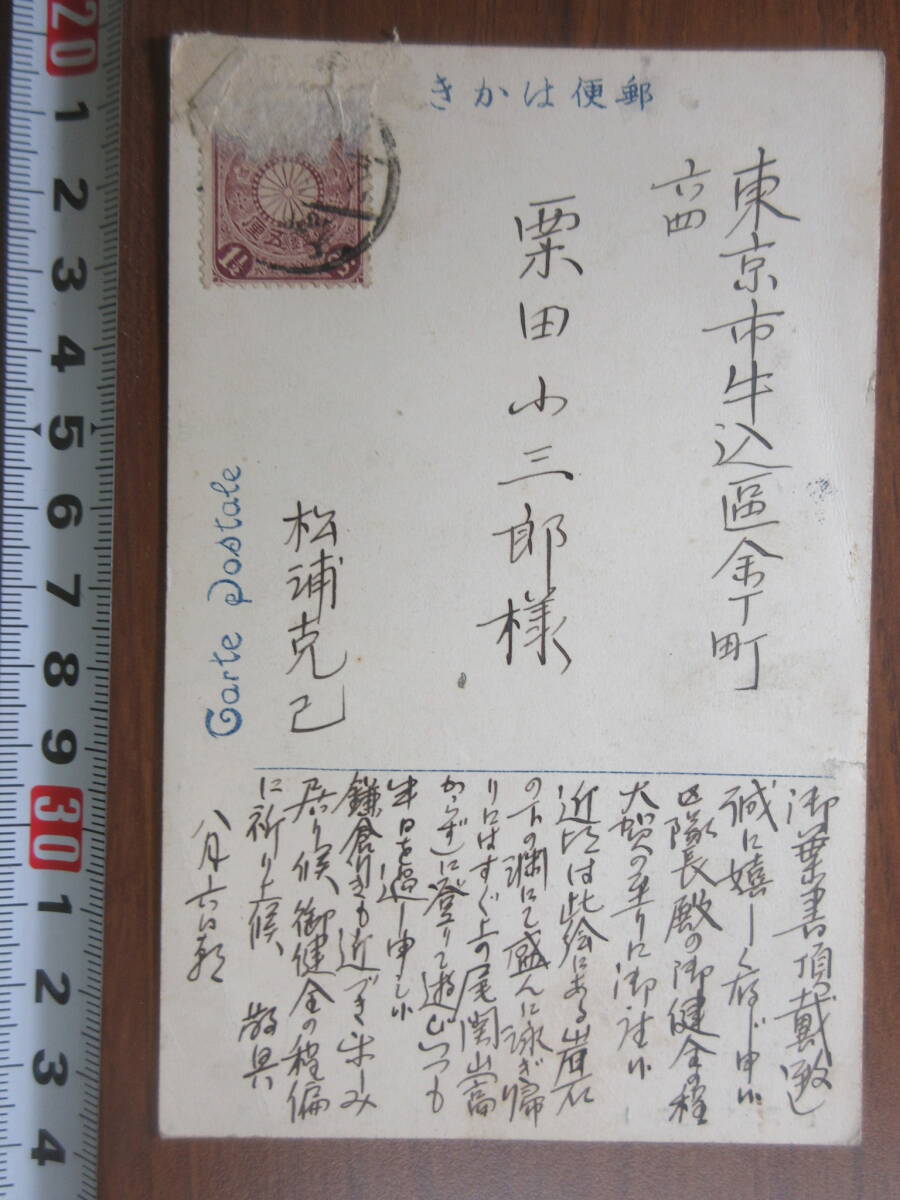 郵便はかき
東京市牛込區余丁町
六四
栗田小三郎様
松浦克己
Carte Postale
御葉書頂戴致し
誠に嬉しく存じ申候
区隊長殿の御健全の程
大賀の至りに御座候
近頃は此絵にある岩
の下の淵にて盛んに泳ぎ帰
りにはすぐ上の尾関山(高
からず)に登りて遊びつつも
半日を過し申し候
鎌倉行きも近づき楽しみ
居り候、御健全の程偏
に祈り上候、 敬具
八月六日朝
1½
五厘
20 1 2 3 4 5 6 7 8 9 30 1 2 3 4